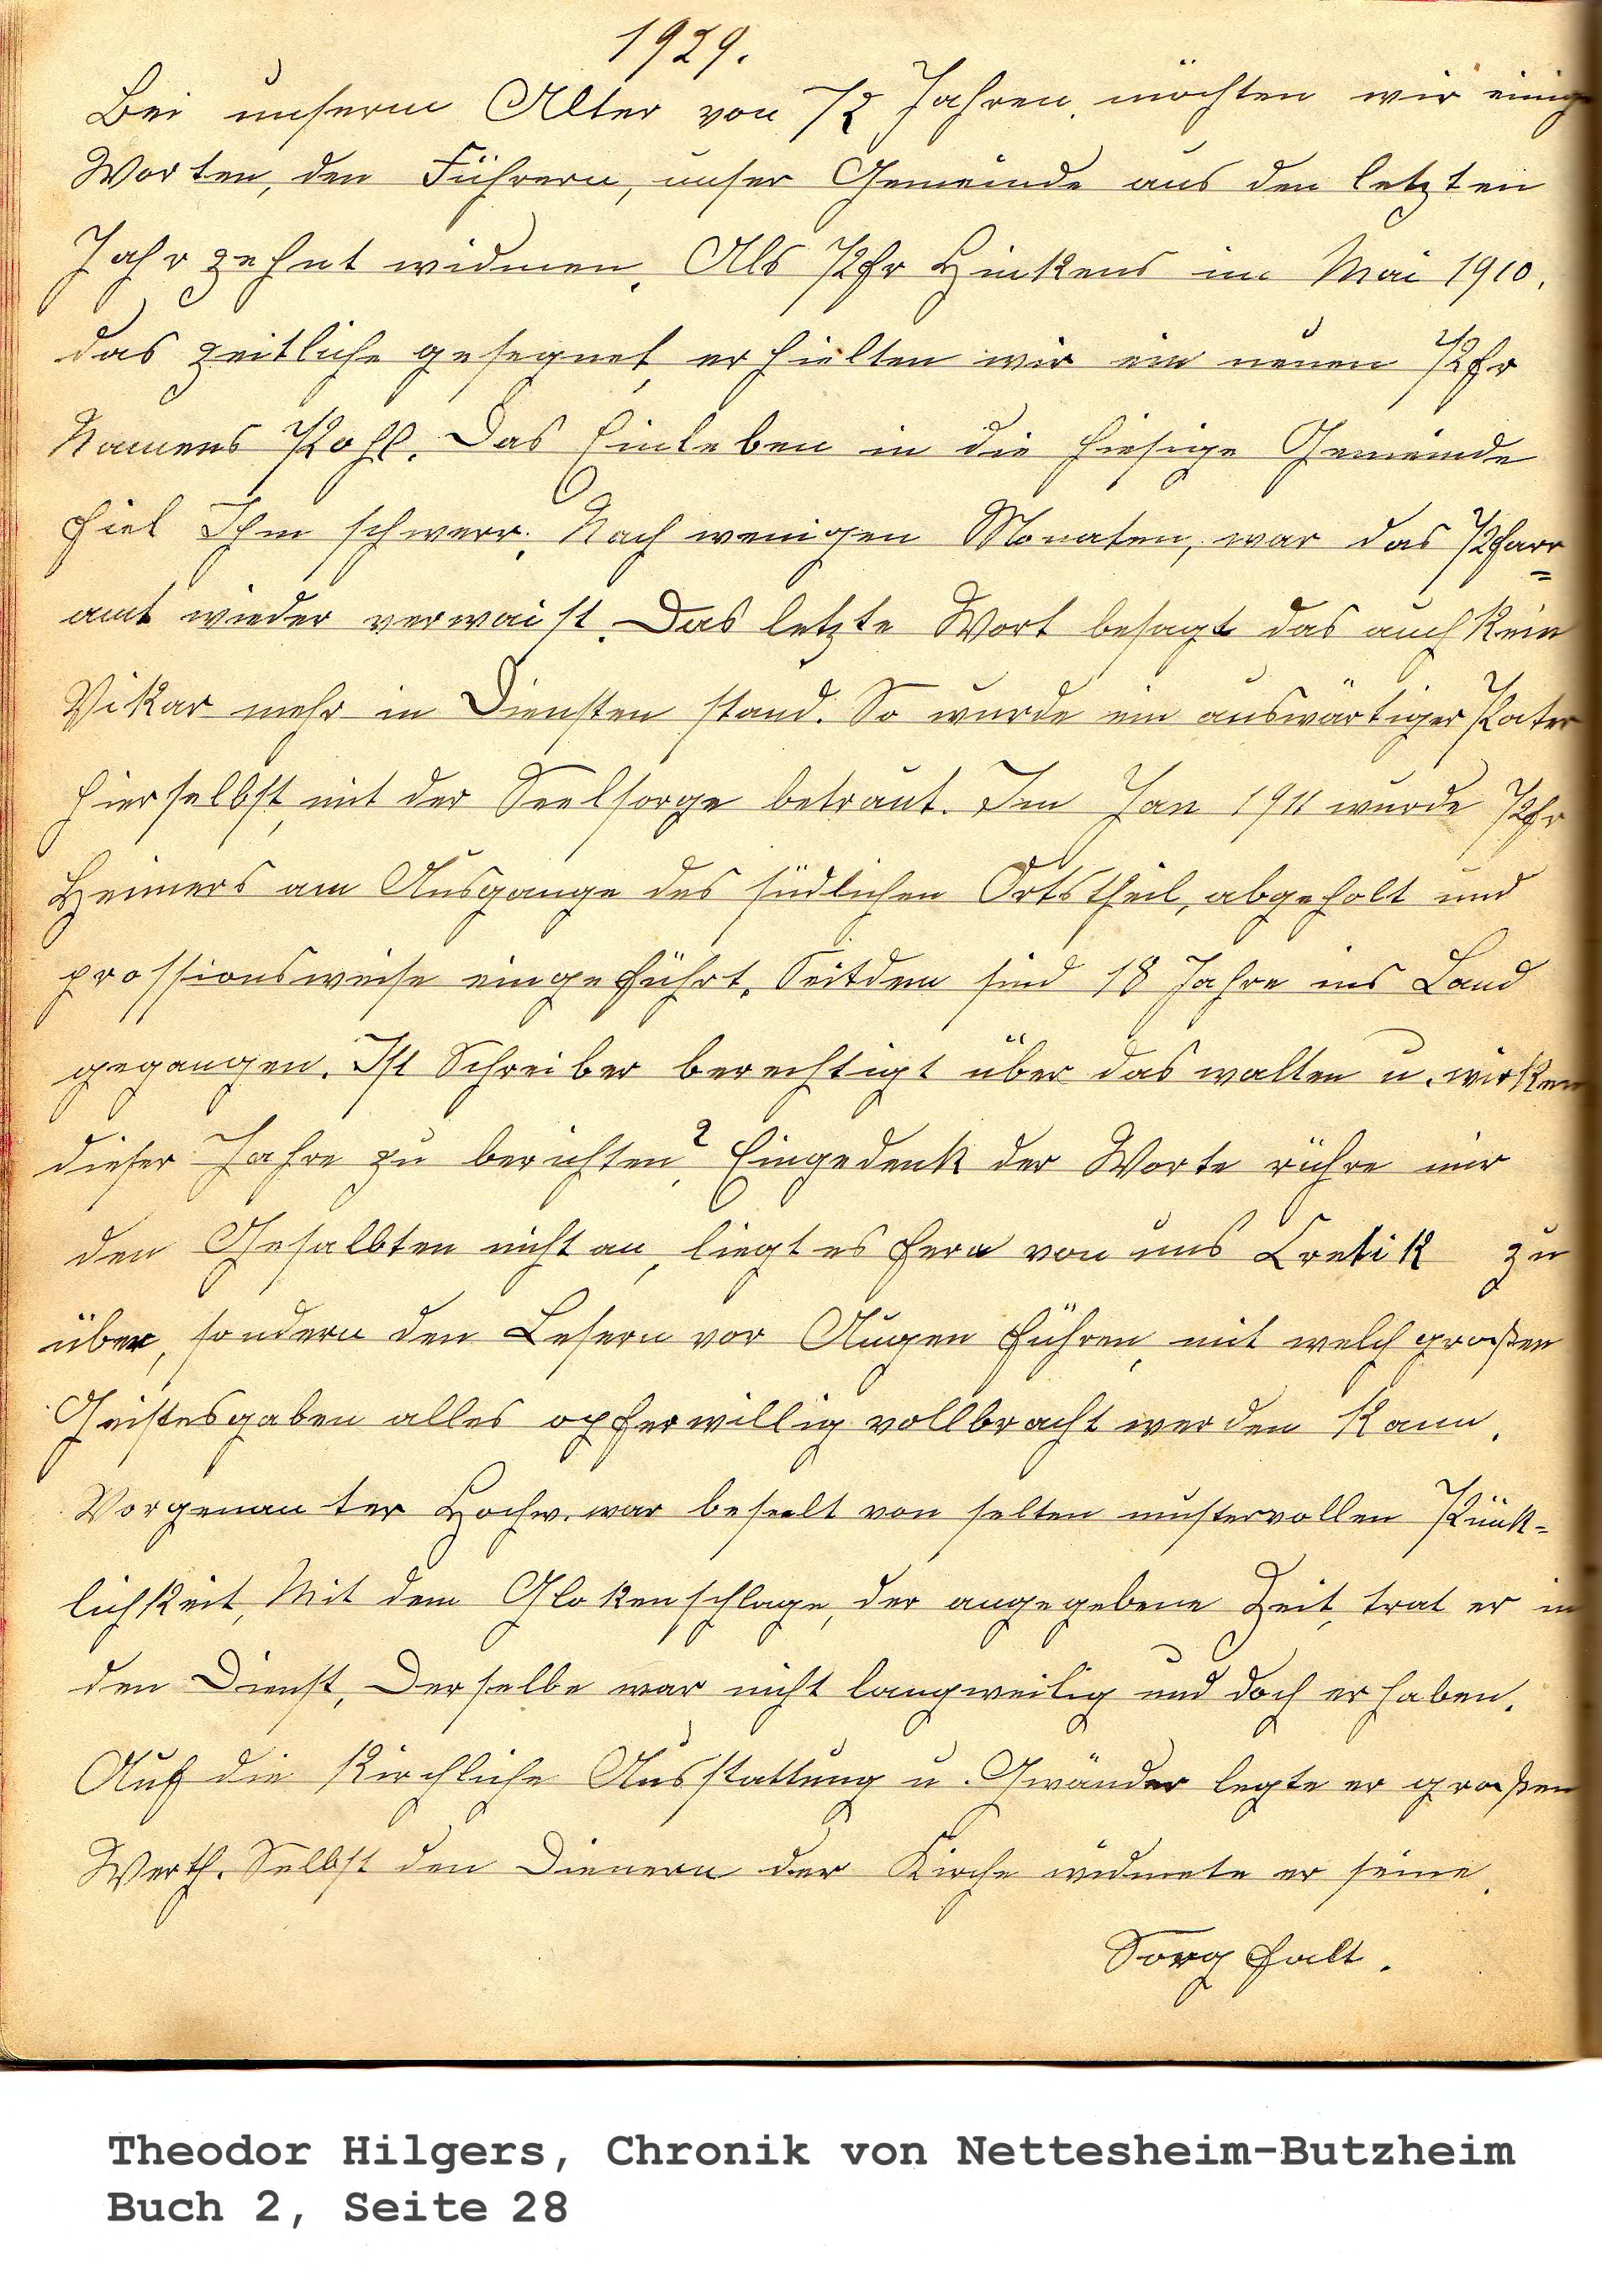 1929.
Bei unserm Alter von 72 Jahren, möchten wir einige
Worten, den Führern, unser Gemeinde aus den letzten
Jahrzehnt widmen. Als Pfr Hinkens im Mai 1910.
das zeitliche gesegnet, erhielten wir ein neuen Pfr
Namens Pohl. Das Einleben in die hiesige Gemeinde
fiel Ihm schwerr. Nach wenigen Monaten, war das Pfarr=
amt wieder verwaist. Das letzte Wort besagt das auch kein
Vikar mehr in Diensten stand. So wurde ein auswärtiger Pater
hierselbst, mit der Seelsorge betraut. Im Jan 1911 wurde Pfr
Heimers am Ausgange des südlichen Ortstheil, abgeholt und
prossionsweise eingeführt. Seitdem sind 18 Jahre ins Land
gegangen. Ist Schreiber berechtigt über das walten u. wirken
dieser Jahre zu berichten? Eingedenk der Worte rühre mir
den Gesalbten nicht an, liegt es fern von uns Cretik zu
über, sondern den Lesern vor Augen führen, mit welch großen
Geistesgaben alles opferwillig vollbracht werden kann.
Vorgenanter Hochw. war beseelt von selten mustervollen Pünk-
lichkeit, Mit dem Glokenschlage, der angegebene Zeit, trat er in
den Dienst, Derselbe war nicht langweilig und doch erhaben.
Auf die kirchliche Ausstattung u. Gwänder legte er großen
Werth. Selbst den Dienern der Kirche widmete er seine.
Sorgfalt.
Theodor Hilgers, Chronik von Nettesheim-Butzheim
Buch 2, Seite 28